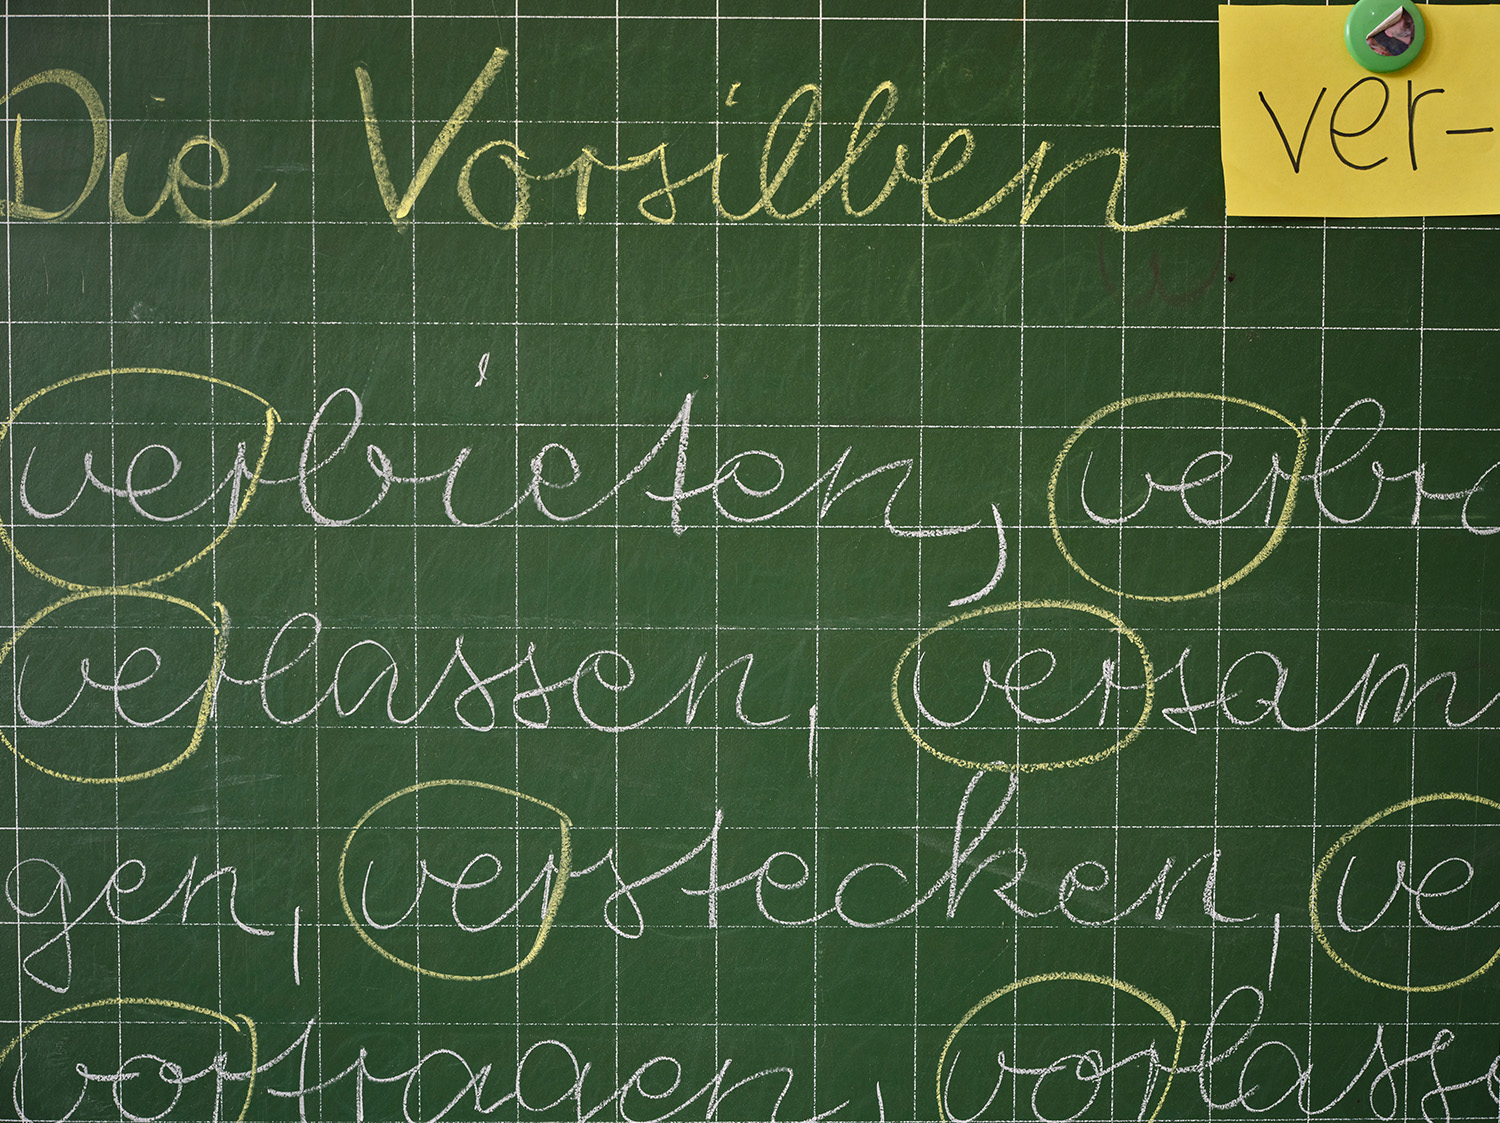 Die Vorsilben ver-
verbieten, verbr
verlassen, versam
gen, verstecken, ve
vortragen, vorlasse